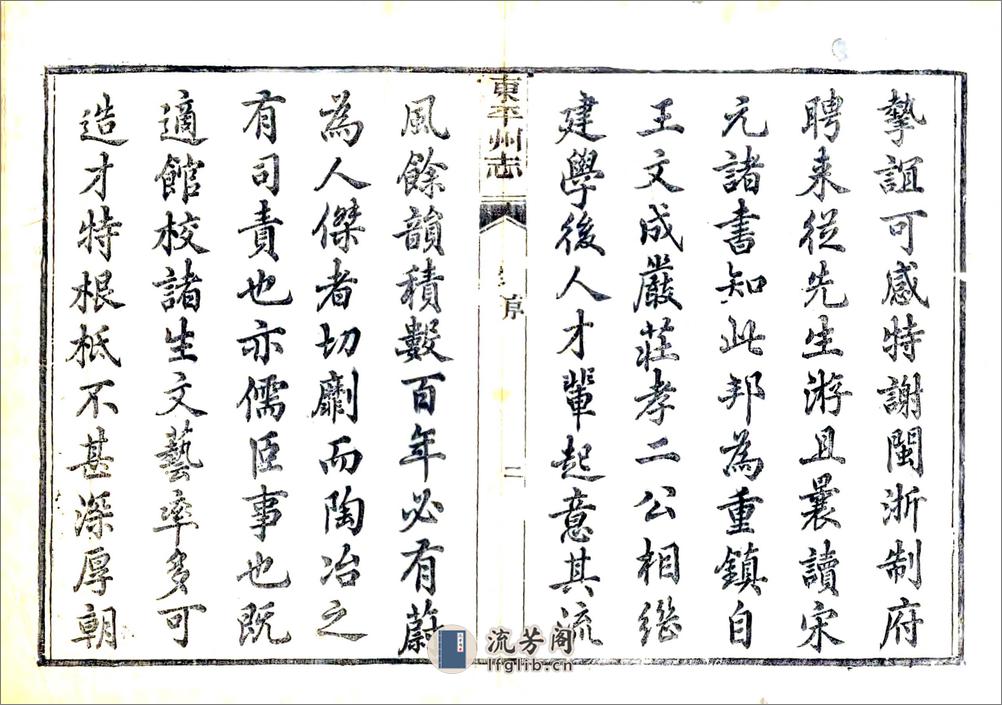 摯誼可感特謝閩浙制府
聘来從先生游且曩讀宋
元諸書知此邦為重鎮自
王文成嚴莊孝二公相繼
建學後人才輩起意其流
東平州志
序
二
風餘韻積數百年必有蔚
為人傑者切劘而陶冶之
有司責也亦儒臣事也既
適館校諸生文藝率多可
造才特根柢不甚深厚朝
流芳阁
lfglib.cn